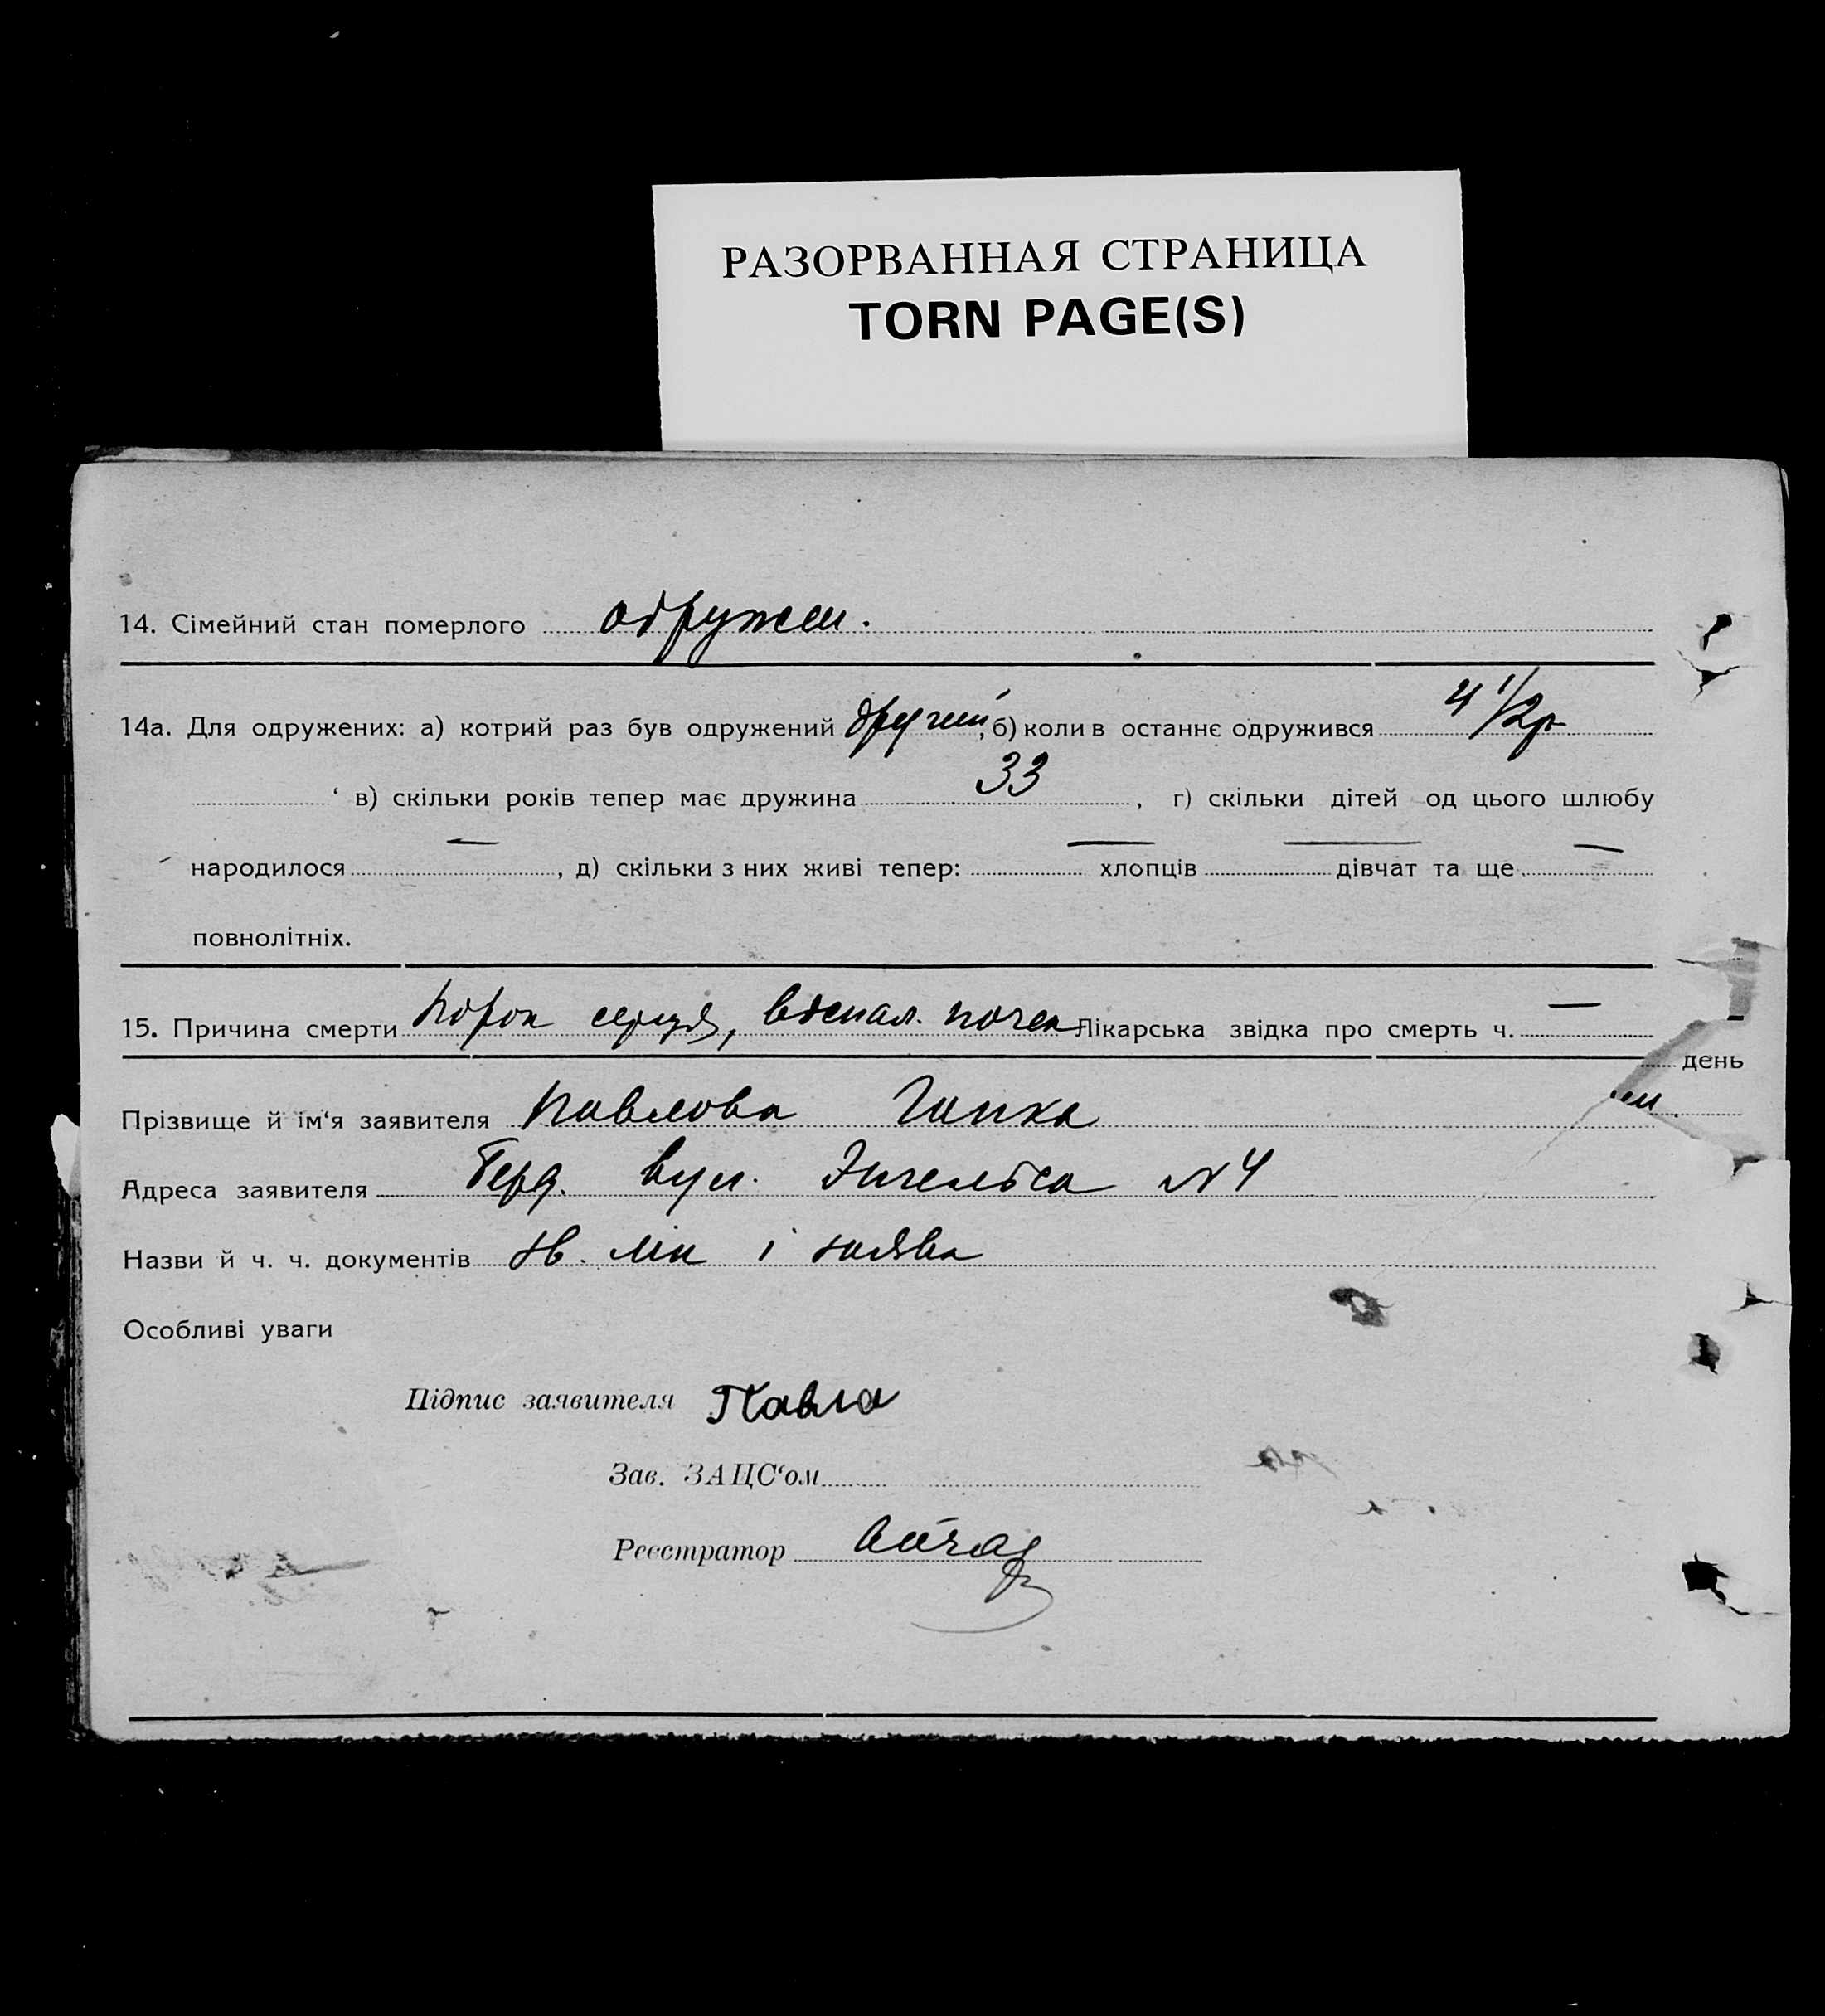 РАЗОРВАННАЯ СТРАНИЦА
TORN PAGE(S)
14. Сімейний стан померлого одружен.
14а. Для одружених: а) котрий раз був одружений другий, б) коли в останнє одружився 4 1/2 р
‘ в) скільки років тепер має дружина 33, г) скільки дітей од цього шлюбу
народилося —, д) скільки з них живі тепер: — хлопців — дівчат та ще —
повнолітніх.
15. Причина смерти порок серця, воспал. почек Лікарська звідка про смерть ч. —
день
Прізвище й ім‘я заявителя Павлова Гапка
Адреса заявителя Берд. вул. Энгельса № 4
Назви й ч. ч. документів зв. лік і заява
Особливі уваги
Підпис заявителя Павло
Зав. ЗАЦС‘ом
Реєстратор